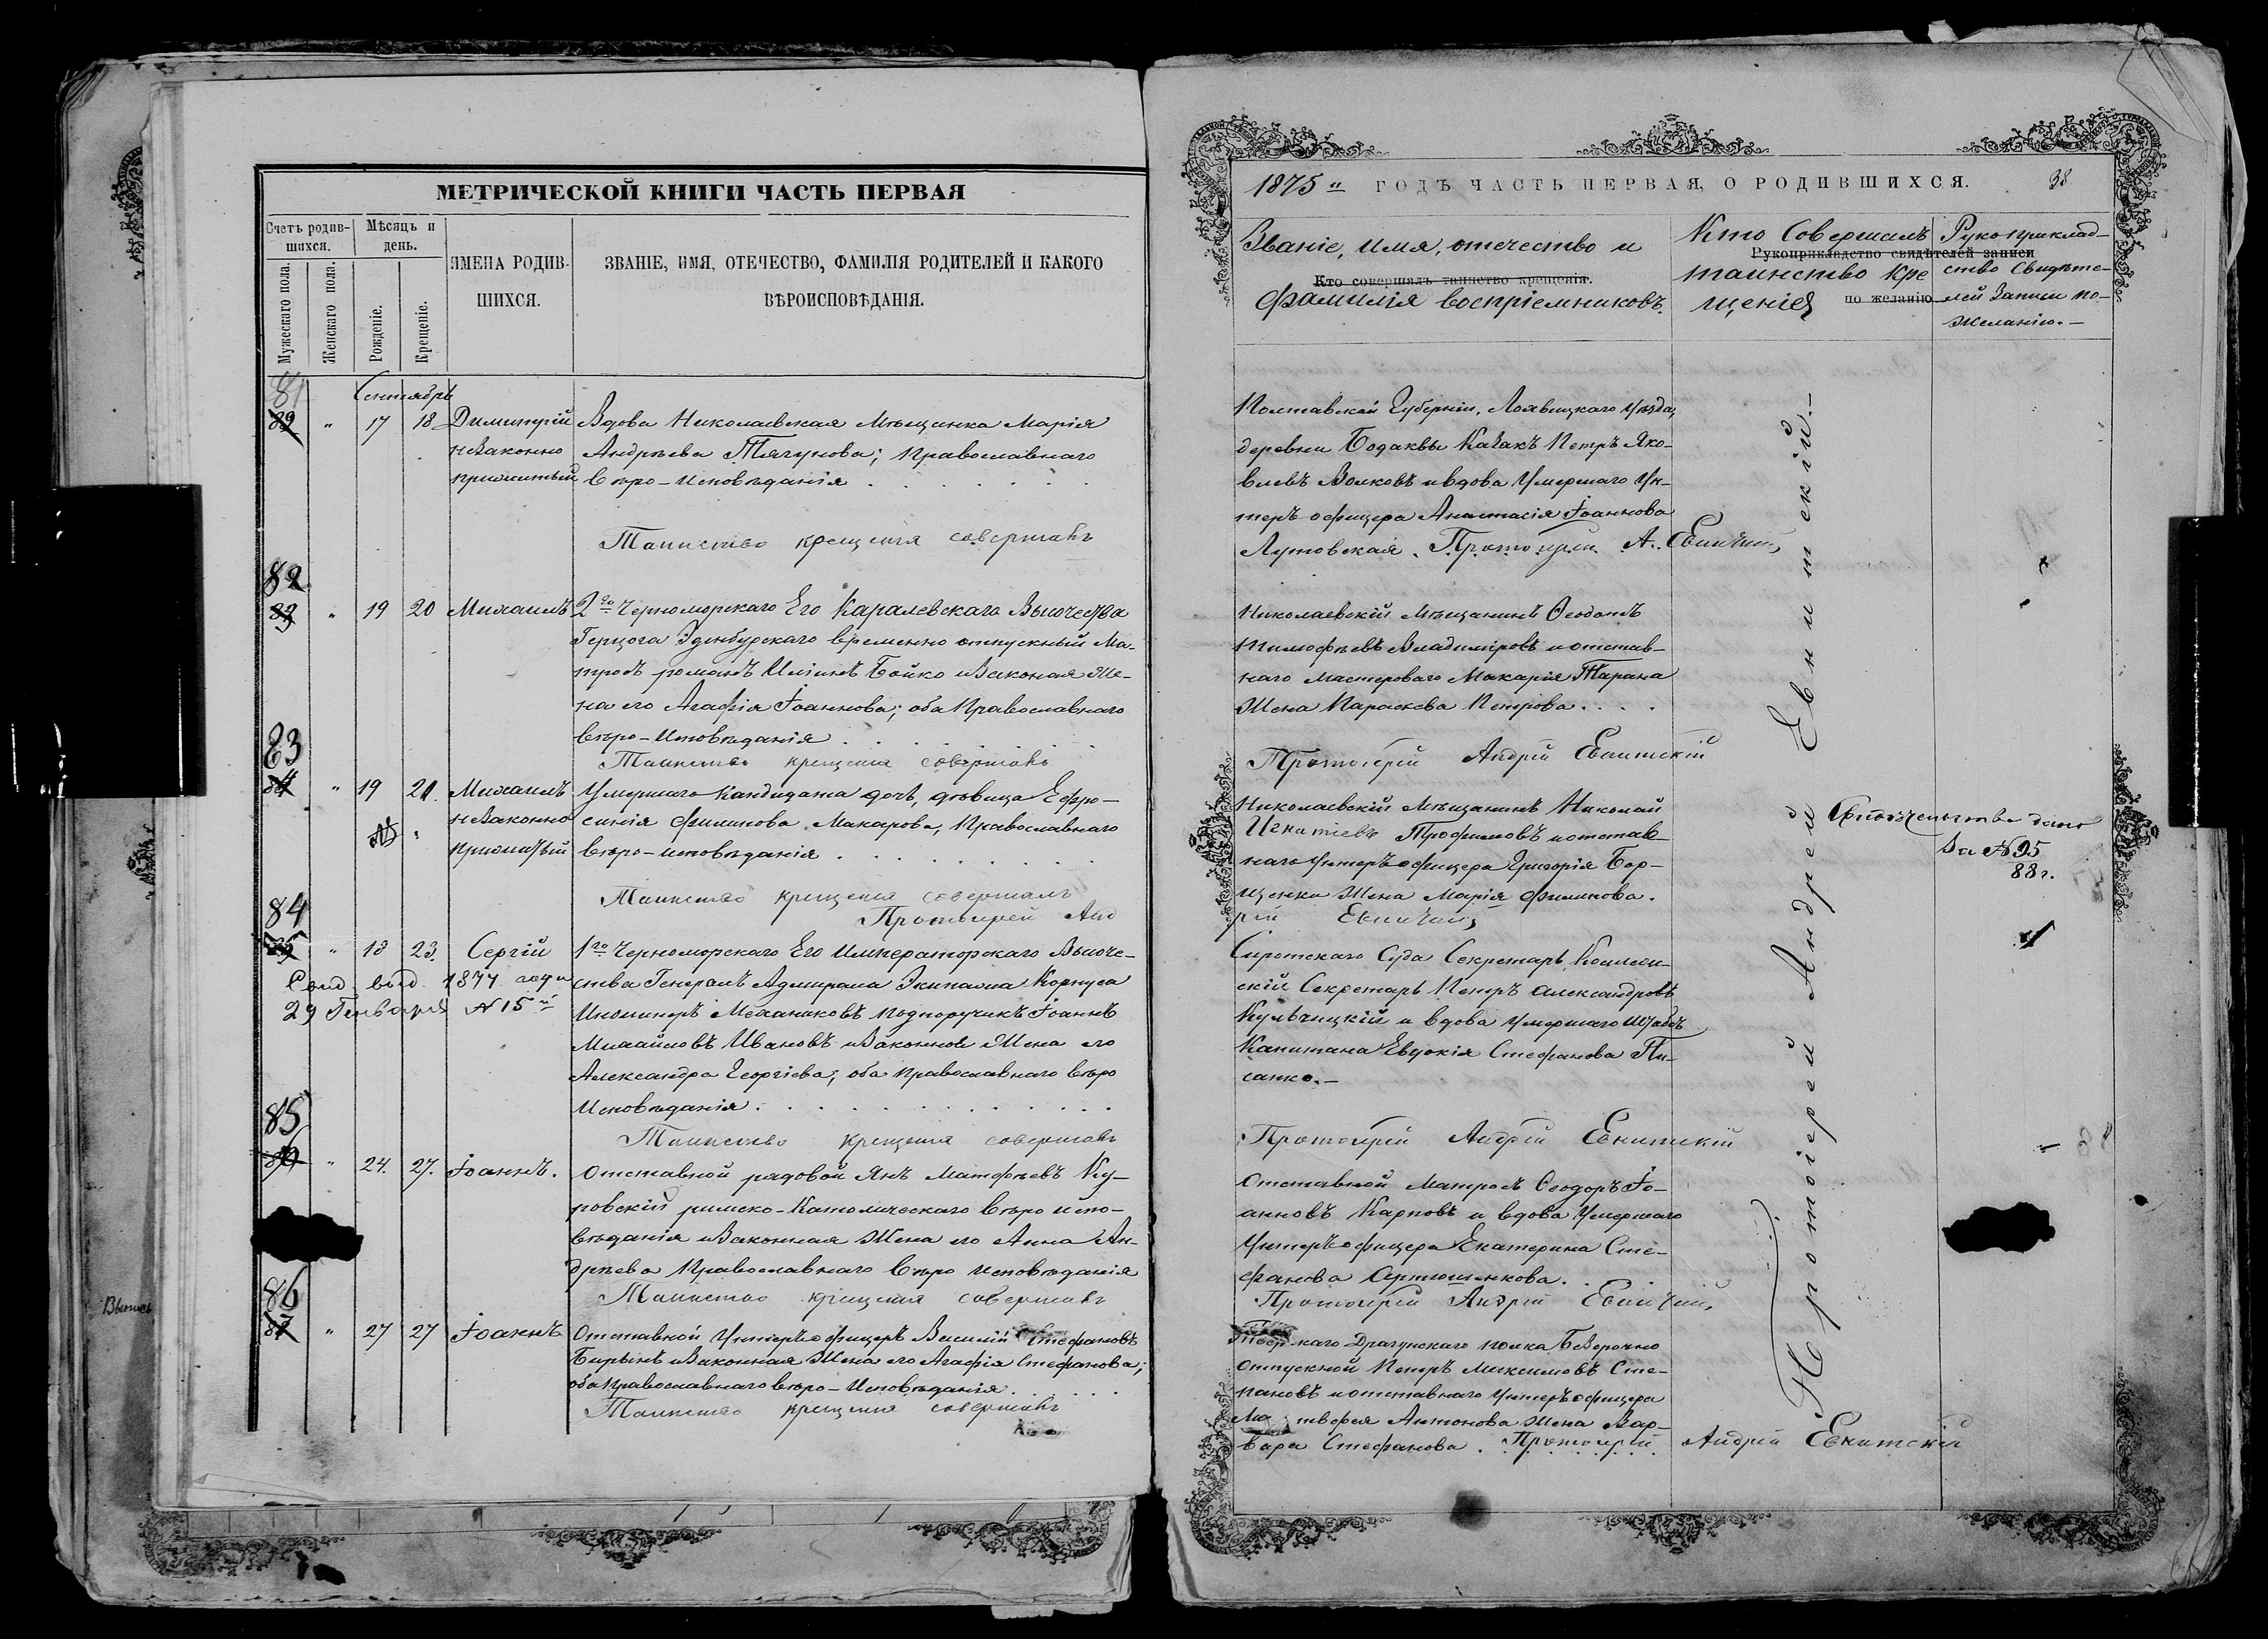 МЕТРИЧЕСКОЙ КНИГИ ЧАСТЬ ПЕРВАЯ
Счетъ родив-
шихся.
Мѣсяцъ и
день.
Мужескаго пола.
Женскаго пола.
Рожденіе.
Крещеніе.
ИМЕНА РОДИВ-
ШИХСЯ.
ЗВАНІЕ, ИМЯ, ОТЕЧЕСТВО, ФАМИЛІЯ РОДИТЕЛЕЙ И КАКОГО
ВѢРОИСПОВѢДАНІЯ.
81
Сентября
" 17 18 Димитрій
незаконно
прижитый
Вдова Николаевская Мѣщанка Марія
Андрѣева Тягунова; Православнаго
вѣро-Исповѣданія
Таинство крещенія совершалъ
82
83 " 19 20 Михаилъ
2го Черноморскаго Его Каралевскаго Высочества
Герцога Эдинбургскаго временно отпускный Ма-
тросъ романъ Бойко и Законая Же-
на его Агафія Іоаннова; оба Православнаго
вѣро-Исповѣданія
Таинство крещенія совершалъ
83
84 " 19 21. Михаилъ
незаконно
прижитый
Умершаго Кандидата дочь, дѣвица Ефро-
синія Филипова Макарова, Православнаго
вѣро-исповѣданія
Таинство крещенія совершалъ
Протоіерей Анд
84
85 " 18 23. Сергій
Свид. выд. 1877 года
29 Генваря № 15й
1го Черноморскаго Его Императорскаго Высоче-
ства Генералъ Адмирала Экипажа Корпуса
Инженеръ Механиковъ подпоручикъ Іоаннъ
Михайловъ Ивановъ и Законная Жена его
Александра Георгіева; оба православнаго вѣро
Исповѣданія
Таинство крещенія совершалъ
85
86 " 24. 27. Іоаннъ.
Отставной рядовой Янъ Матфѣевъ Ку-
ровскій римско-Католическаго вѣро испо-
вѣданія и Законная Жена его Анна Ан-
дрѣева Православнаго вѣро исповѣданія
Таинство крещенія совершалъ
86
87 " 27 27 Іоаннъ
Отставной Унтеръ офицеръ Василій Стефановъ
и Законная Жена его Агафія Стефанова;
оба Православнаго вѣро-Исповѣданія
Таинство крещенія совершалъ
1875" ГОДЪ ЧАСТЬ ПЕРВАЯ, О РОДИВШИХСЯ. 38
Званіе, имя, отечество и
Кто совершалъ таинство крещенія.
фамилія воспріемниковъ.
Кто Совершалъ
Рукоприкладство свидѣтелей записи
таинство Кре
щенія
по желанію
Рукоприклад-
ство Свидѣте-
лей Записи по-
желанію.-
Полтавской Губерніи, Лохвицкаго Уѣзда,
деревни Бодаквы Казакъ Петръ Яко-
влевъ Волковъ и вдова Умершаго Ун-
теръ офицера Анастасія Іоаннова
Лутовская. Протоіерей А. Евнитскій
Николаевскій Мѣщанинъ Ѳеодоръ
Тимофѣевъ Владиміровъ и отстав-
наго мастероваго Макарія Тарана
Жена Параскева Петрова
Протоіерей Андрей Евнитскій
Николаевскій Мѣщанинъ Николай
Игнатіевъ Трофимовъ и отстав-
наго Унтеръ офицера Григорія Бор-
щенки Жена Марія Филипова.
рей Евнитскій
Свидѣтельство дано
за № 95
88 г.
Сиротскаго Суда Секретарь Коллеж-
скій Секретарь Петръ Александровъ
Кульчицкій и вдова умершаго Штабсъ
Капитана Евдокія Стефанова Пи-
санко.-
Протоіерей Андрей Евнитскій
Отставной Матросъ Ѳеодоръ Іо-
анновъ Карповъ и вдова Умершаго
Унтеръ офицера Екатерина Сте-
фанова Артюшенкова.
Протоіерей Андрей Евнитскій
Драгунскаго полка Безсрочно
отпускной Петръ Максимовъ Сте-
пановъ и отставнаго Унтеръ офицера
Матвѣя Антонова Жена Вар-
вара Стефанова. Протоіерей Андрей Евнитскій
Протоіерей Андрей Евнитскій.-